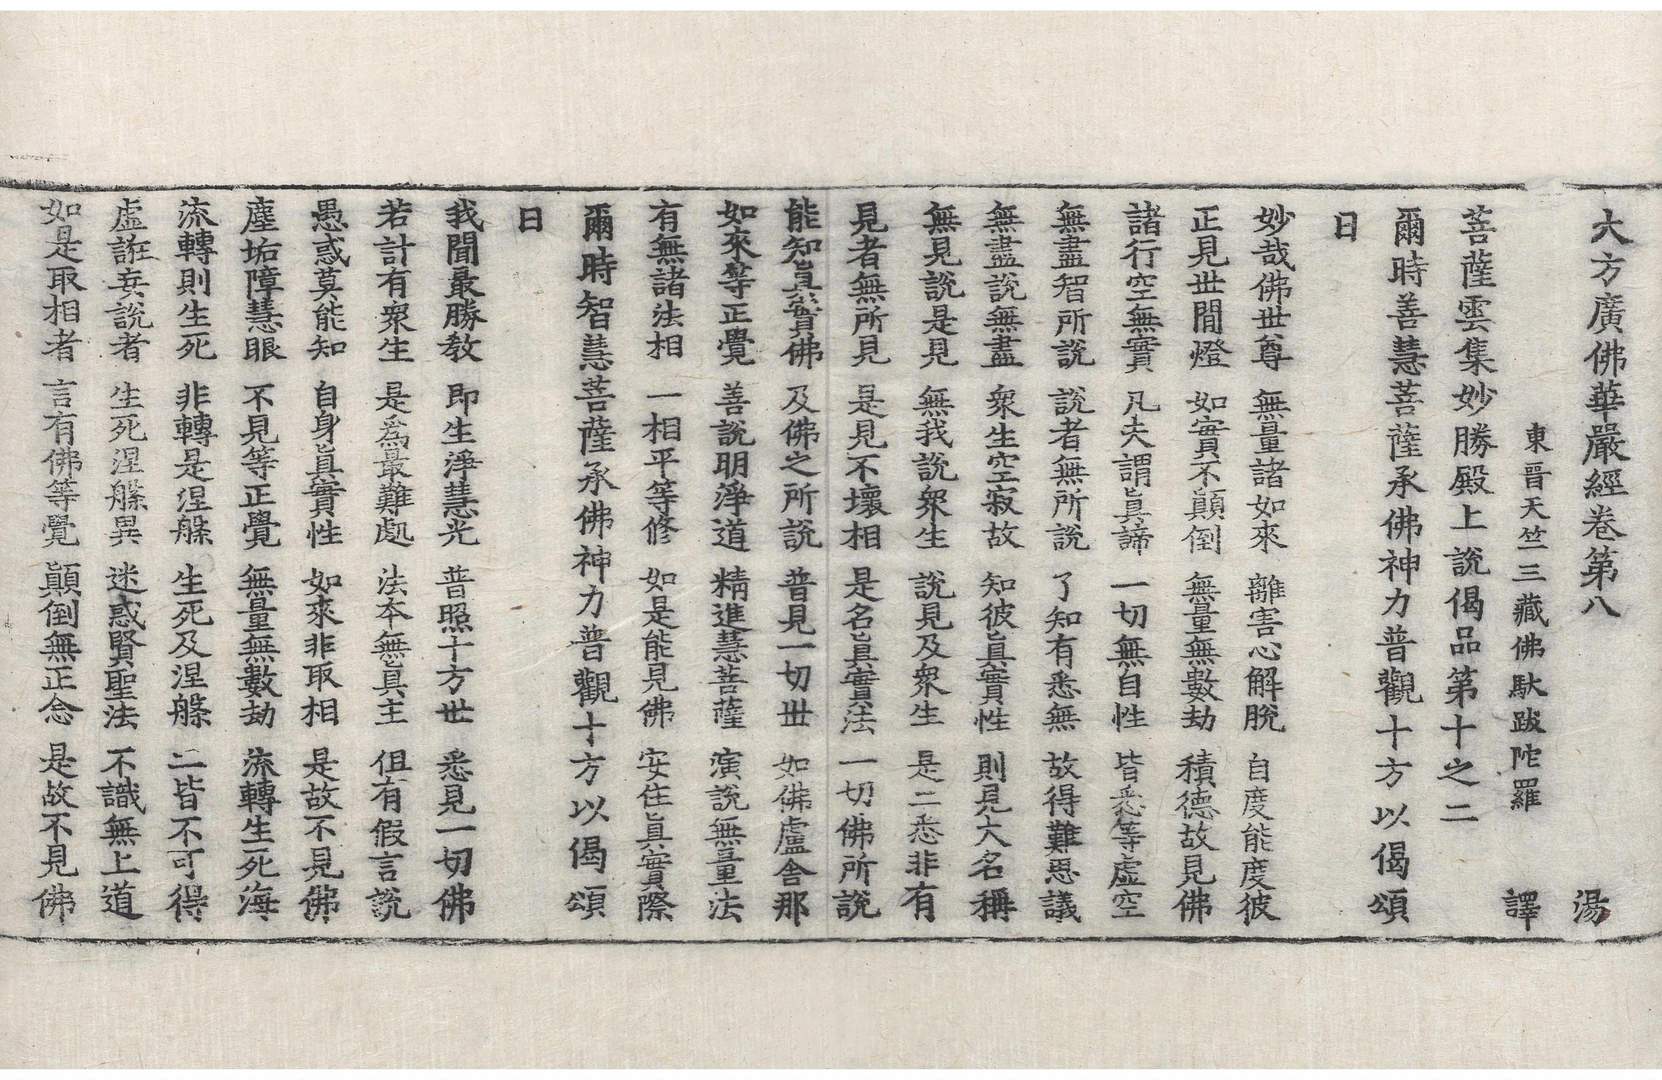 大方廣佛華嚴經卷第八 湯
東晉天竺三藏佛馱跋陀羅 譯
菩薩雲集妙勝殿上說偈品第十之二
爾時善慧菩薩承佛神力普觀十方以偈頌
曰
妙哉佛世尊 無量諸如來 離害心解脫 自度能度彼
正見世間燈 如實不顛倒 無量無數劫 積德故見佛
諸行空無實 凡夫謂眞諦 一切無自性 皆悉等虛空
無盡智所說 說者無所說 了知有悉無 故得難思議
無盡說無盡 衆生空寂故 知彼眞實性 則見大名稱
無見說是見 無我說衆生 說見及衆生 是二悉非有
見者無所見 是見不壞相 是名眞實法 一切佛所說
能知眞實佛 及佛之所說 普見一切世 如佛盧舍那
如來等正覺 善說明淨道 精進慧菩薩 演說無量法
有無諸法相 一相平等修 如是能見佛 安住眞實際
爾時智慧菩薩承佛神力普觀十方以偈頌
曰
我聞最勝教 即生淨慧光 普照十方世 悉見一切佛
若計有衆生 是爲最難處 法本無眞主 但有假言說
愚惑莫能知 自身眞實性 如來非取相 是故不見佛
塵垢障慧眼 不見等正覺 無量無數劫 流轉生死海
流轉則生死 非轉是涅槃 生死及涅槃 二皆不可得
虛誑妄說者 生死涅槃異 迷惑賢聖法 不識無上道
如是取相者 言有佛等覺 顛倒無正念 是故不見佛